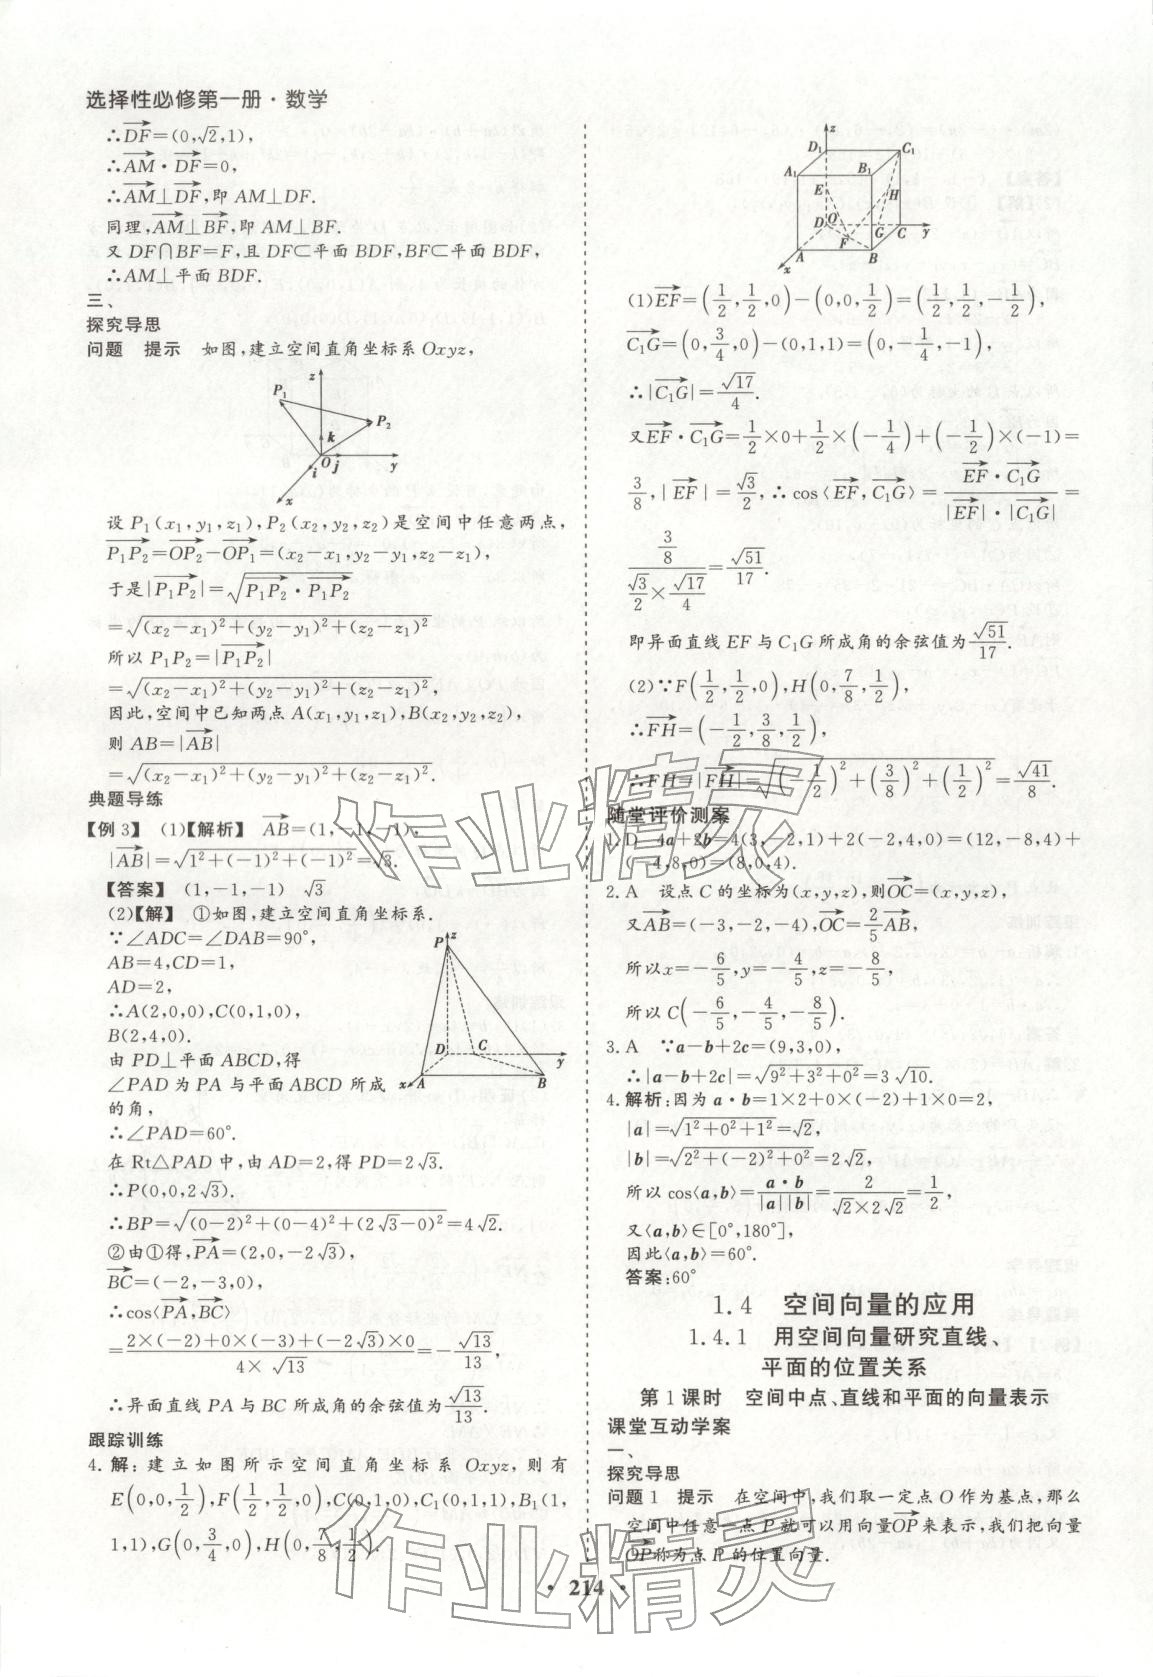 选择性必修第一册·数学
∴DF=(0,√2,1),
∴AM·DF=0,
∴AM⊥DF,即 AM⊥DF.
同理,AM⊥BF,即 AM⊥BF.
又 DF∩BF=F,且 DF⊂平面 BDF,BF⊂平面 BDF,
∴AM⊥平面 BDF.
三、
探究导思
问题 提示 如图,建立空间直角坐标系 Oxyz,
z
P₁
P₂
k
O
i
j
y
x
设 P₁(x₁,y₁,z₁),P₂(x₂,y₂,z₂)是空间中任意两点,
P₁P₂=OP₂-OP₁=(x₂-x₁,y₂-y₁,z₂-z₁),
于是|P₁P₂|=√(P₁P₂·P₁P₂)
=√((x₂-x₁)²+(y₂-y₁)²+(z₂-z₁)²)
所以 P₁P₂=|P₁P₂|
=√((x₂-x₁)²+(y₂-y₁)²+(z₂-z₁)²),
因此,空间中已知两点 A(x₁,y₁,z₁),B(x₂,y₂,z₂),
则 AB=|AB|
=√((x₂-x₁)²+(y₂-y₁)²+(z₂-z₁)²).
典题导练
【例 3】 (1)【解析】 AB=(1,-1,-1),
|AB|=√(1²+(-1)²+(-1)²)=√3.
【答案】 (1,-1,-1) √3
(2)【解】 ①如图,建立空间直角坐标系.
∵∠ADC=∠DAB=90°,
AB=4,CD=1,
AD=2,
∴A(2,0,0),C(0,1,0),
B(2,4,0).
由 PD⊥平面 ABCD,得
∠PAD 为 PA 与平面 ABCD 所成
的角,
∴∠PAD=60°.
P
z
D
C
y
x
A
B
在 Rt△PAD 中,由 AD=2,得 PD=2√3.
∴P(0,0,2√3).
∴BP=√((0-2)²+(0-4)²+(2√3-0)²)=4√2.
②由①得,PA=(2,0,-2√3),
BC=(-2,-3,0),
∴cos⟨PA,BC⟩
=(2×(-2)+0×(-3)+(-2√3)×0)/(4×√13)=-√13/13,
∴异面直线 PA 与 BC 所成角的余弦值为√13/13.
跟踪训练
4. 解:建立如图所示空间直角坐标系 Oxyz,则有
E(0,0,1/2),F(1/2,1/2,0),C(0,1,0),C₁(0,1,1),B₁(1,
1,1),G(0,3/4,0),H(0,7/8,1/2).
z
D₁
C₁
A₁
B₁
E
H
D
O
F
G
C
y
A
B
x
(1)EF=(1/2,1/2,0)-(0,0,1/2)=(1/2,1/2,-1/2),
C₁G=(0,3/4,0)-(0,1,1)=(0,-1/4,-1),
∴|C₁G|=√17/4.
又EF·C₁G=1/2×0+1/2×(-1/4)+(-1/2)×(-1)=
3/8,|EF|=√3/2,∴cos⟨EF,C₁G⟩=(EF·C₁G)/(|EF|·|C₁G|)=
(3/8)/(√3/2×√17/4)=√51/17.
即异面直线 EF 与 C₁G 所成角的余弦值为√51/17.
(2)∵F(1/2,1/2,0),H(0,7/8,1/2),
∴FH=(-1/2,3/8,1/2),
∴FH=|FH|=√((-1/2)²+(3/8)²+(1/2)²)=√41/8.
随堂评价测案
1. D 4a+2b=4(3,-2,1)+2(-2,4,0)=(12,-8,4)+
(-4,8,0)=(8,0,4).
2. A 设点 C 的坐标为(x,y,z),则OC=(x,y,z),
又AB=(-3,-2,-4),OC=2/5AB,
所以x=-6/5,y=-4/5,z=-8/5,
所以 C(-6/5,-4/5,-8/5).
3. A ∵a-b+2c=(9,3,0),
∴|a-b+2c|=√(9²+3²+0²)=3√10.
4. 解析:因为 a·b=1×2+0×(-2)+1×0=2,
|a|=√(1²+0²+1²)=√2,
|b|=√(2²+(-2)²+0²)=2√2,
所以 cos⟨a,b⟩=(a·b)/(|a||b|)=2/(√2×2√2)=1/2,
又⟨a,b⟩∈[0°,180°],
因此⟨a,b⟩=60°.
答案:60°
1.4 空间向量的应用
1.4.1 用空间向量研究直线、
平面的位置关系
第 1 课时 空间中点、直线和平面的向量表示
课堂互动学案
一、
探究导思
问题 1 提示 在空间中,我们取一定点 O 作为基点,那么
空间中任意一点 P 就可以用向量OP来表示,我们把向量
OP称为点 P 的位置向量.
·214·
作业精灵
作业精灵